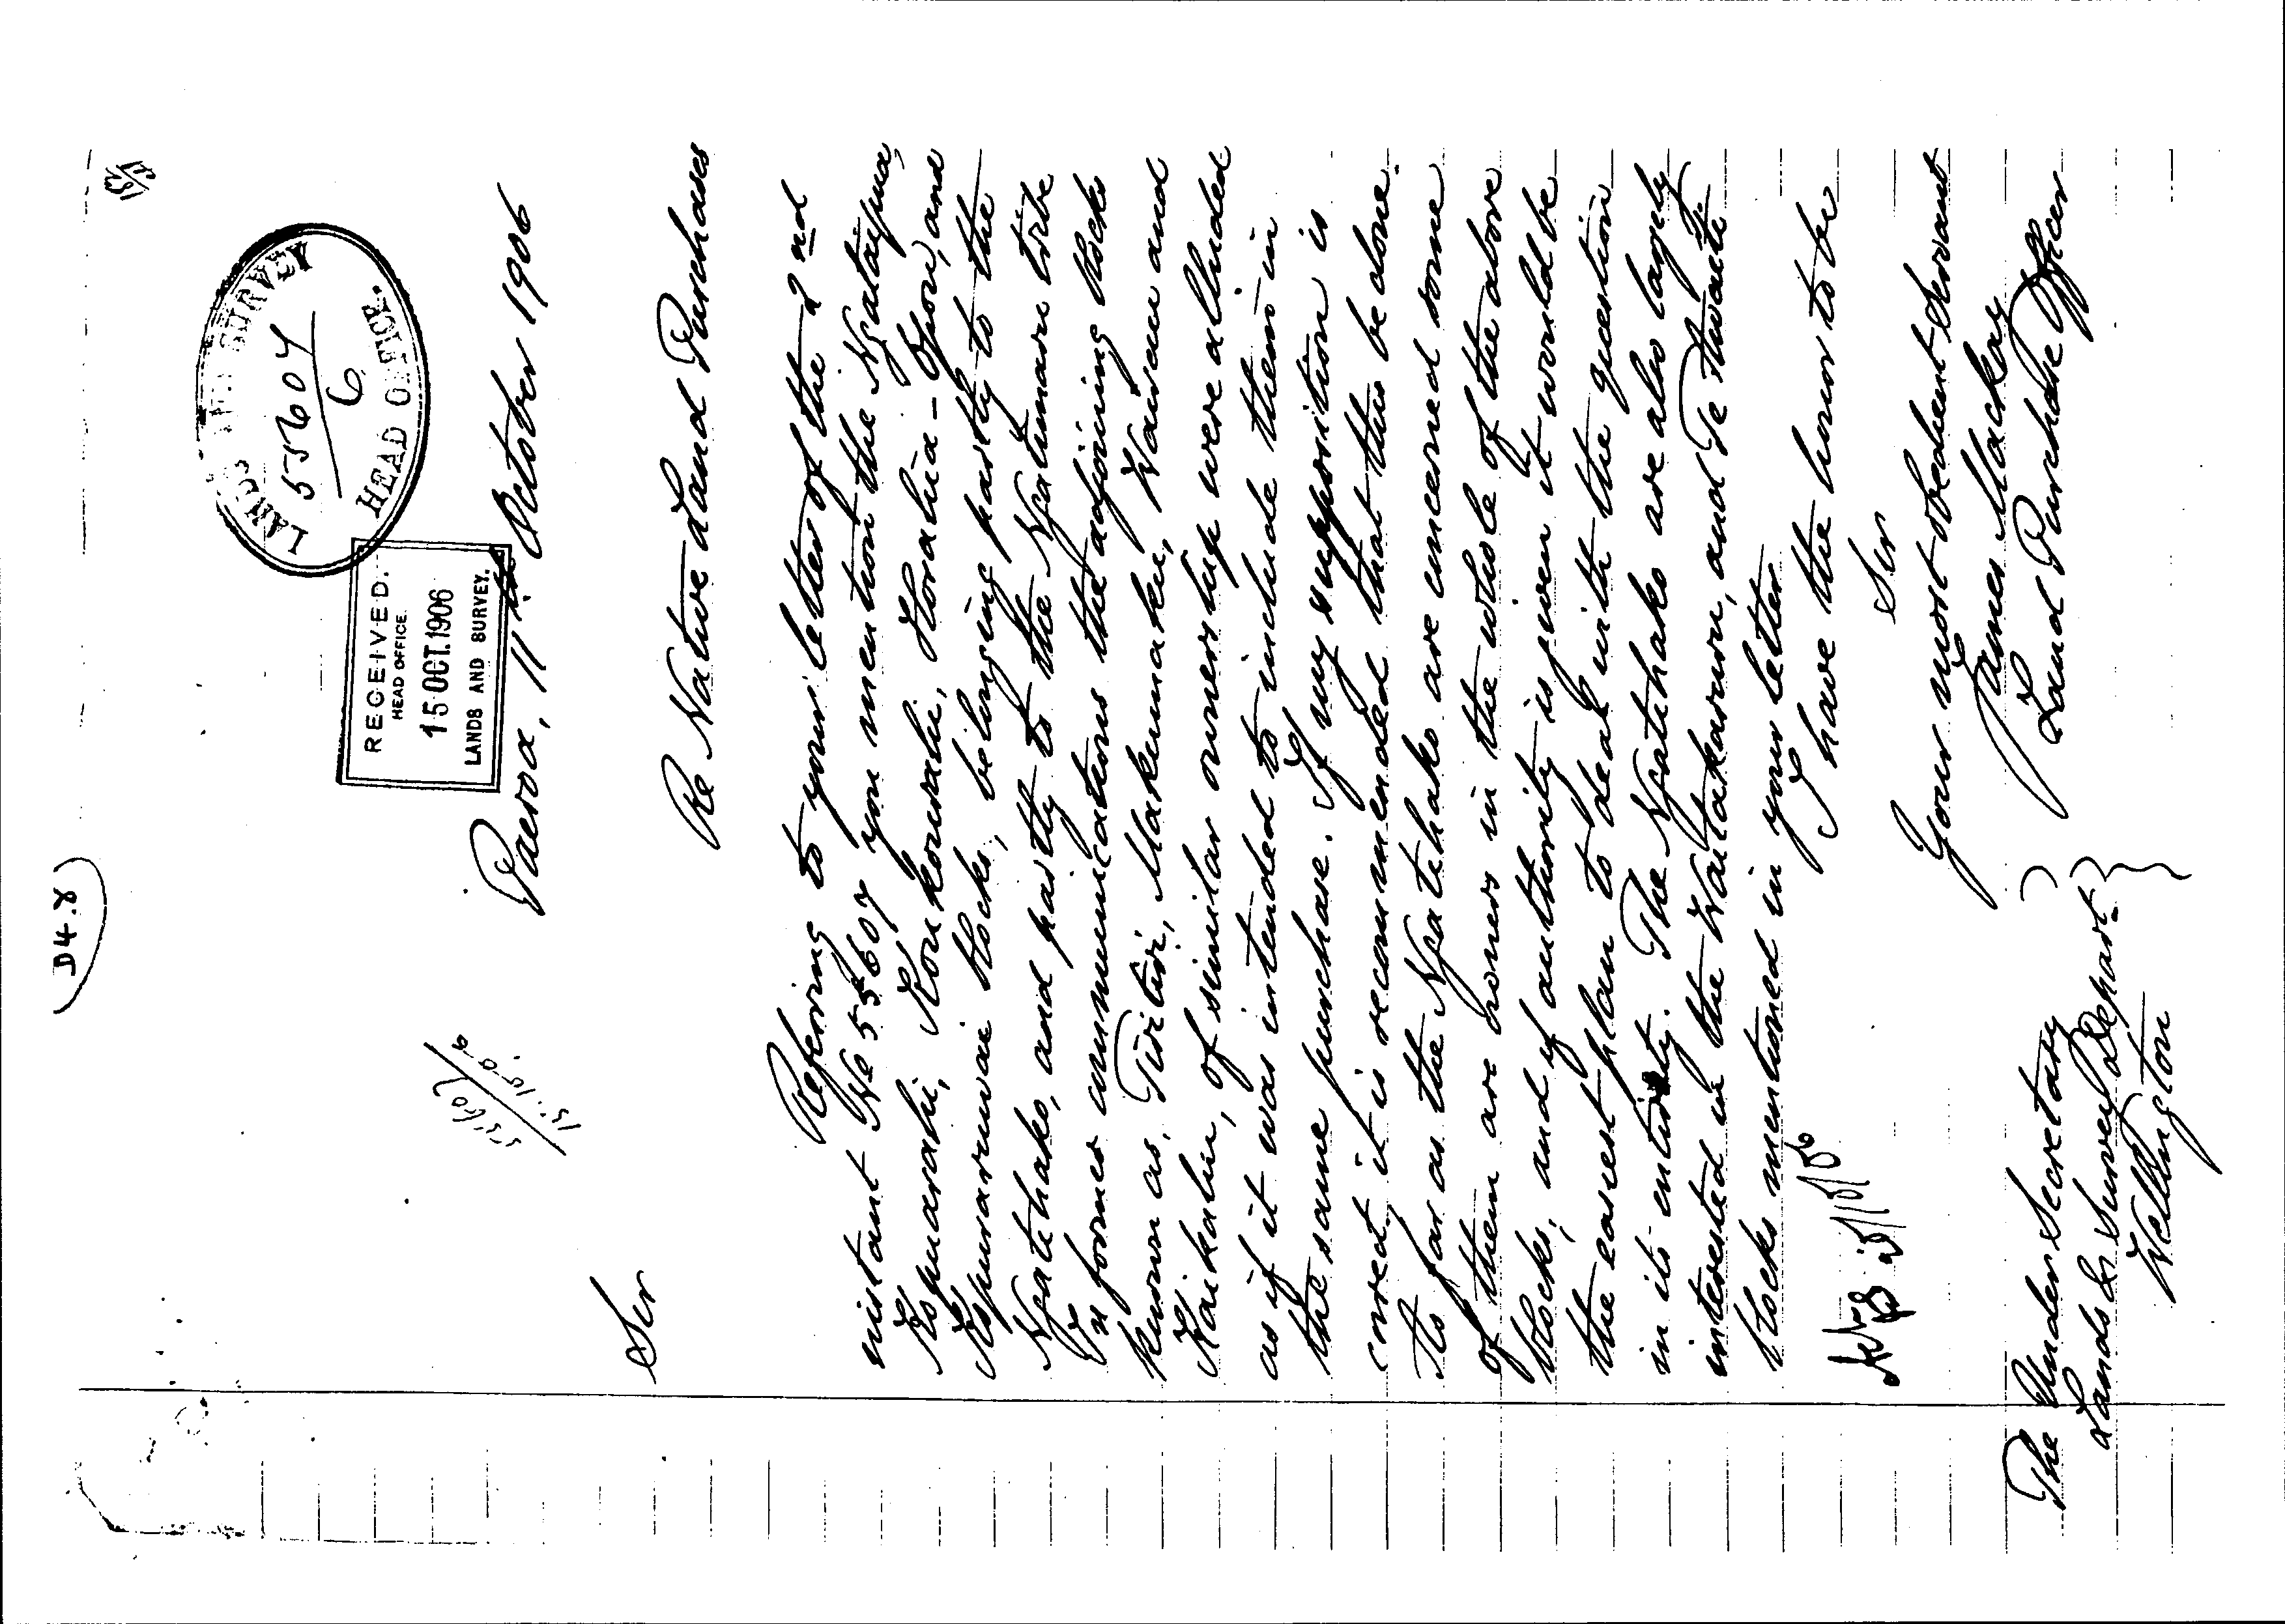 D4.8
LANDS AND SURVEY
55607
6
HEAD OFFICE.
RECEIVED.
HEAD OFFICE
15 OCT. 1906
LANDS AND SURVEY.
Paeroa, 11th October 1906
55607
15.10.06
Sir
Re Native Land Purchases
Referring to your letter of the 2nd
instant No 55607 you mention the Ngataipua,
Kopuarahi, Koukourahi, Horahia-Opou, and
Kopuraruwai blocks, belonging partly to the
Ngatihako, and partly to the Ngatimaru tribe
In former communications the adjoining blocks
known as, Tiritiri, Makumaku, Waisau and
Kaikahu, of similar ownership were alluded
as if it was intended to include them in
the same purchase. If my supposition is
correct, it is recommended that this be done.
As far as the Ngatihako are concerned some
of them are owners in the whole of the above
blocks, and if authority is given it would be
the easiest plan to deal with the question
in its entirety. The Ngatihako are also largely
interested in the Waitakaruru, and Te Awaiti
blocks mentioned in your letter.
I have the honor to be
Sir
Your most obedient servant
James Mackay
Land Purchase Officer
The Under Secretary
Lands & Survey Depart.
Wellington